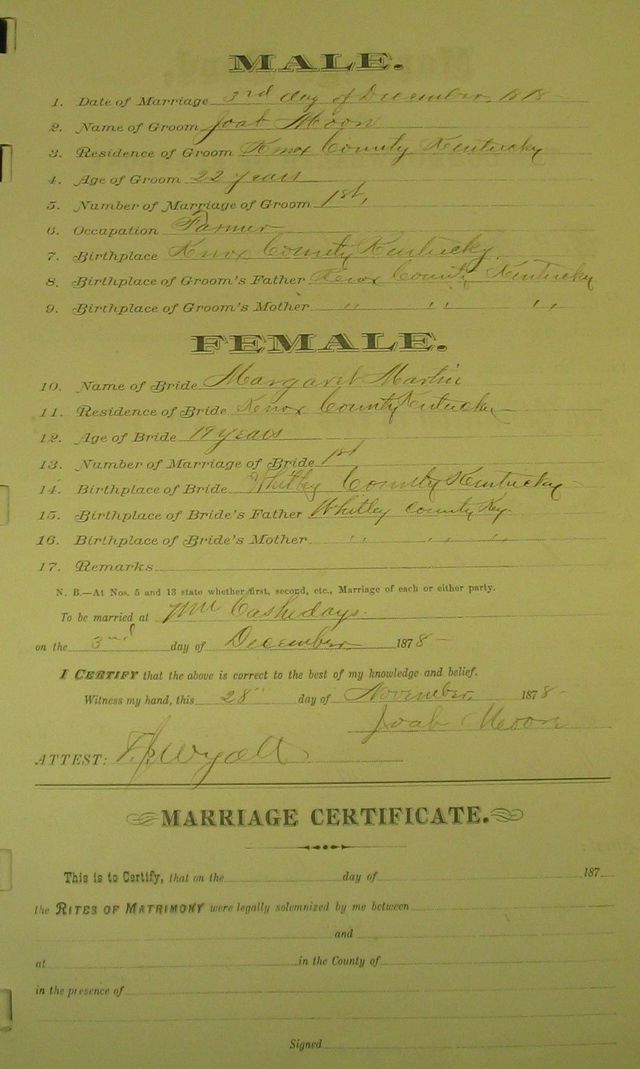 MALE.
1. Date of Marriage 3rd day of December, 1878
2. Name of Groom Joab Moon
3. Residence of Groom Knox County Kentucky
4. Age of Groom 22 years
5. Number of Marriage of Groom 1st,
6. Occupation Farmer
7. Birthplace Knox County Kentucky.
8. Birthplace of Groom's Father Knox County Kentucky
9. Birthplace of Groom's Mother " " "
FEMALE.
10. Name of Bride Margaret Martin
11. Residence of Bride Knox County Kentucky
12. Age of Bride 19 years
13. Number of Marriage of Bride 1st
14. Birthplace of Bride Whitley County Kentucky
15. Birthplace of Bride's Father Whitley County Ky.
16. Birthplace of Bride's Mother " " "
17. Remarks
N. B.—At Nos. 5 and 13 state whether first, second, etc., Marriage of each or either party.
To be married at
on the 3rd day of December 1878
I CERTIFY that the above is correct to the best of my knowledge and belief.
Witness my hand, this 28" day of November 1878
Joab Moon
ATTEST: Wyatt
MARRIAGE CERTIFICATE.
This is to Certify, that on the day of 187
the RITES OF MATRIMONY were legally solemnized by me between
and
at in the County of
in the presence of
Signed